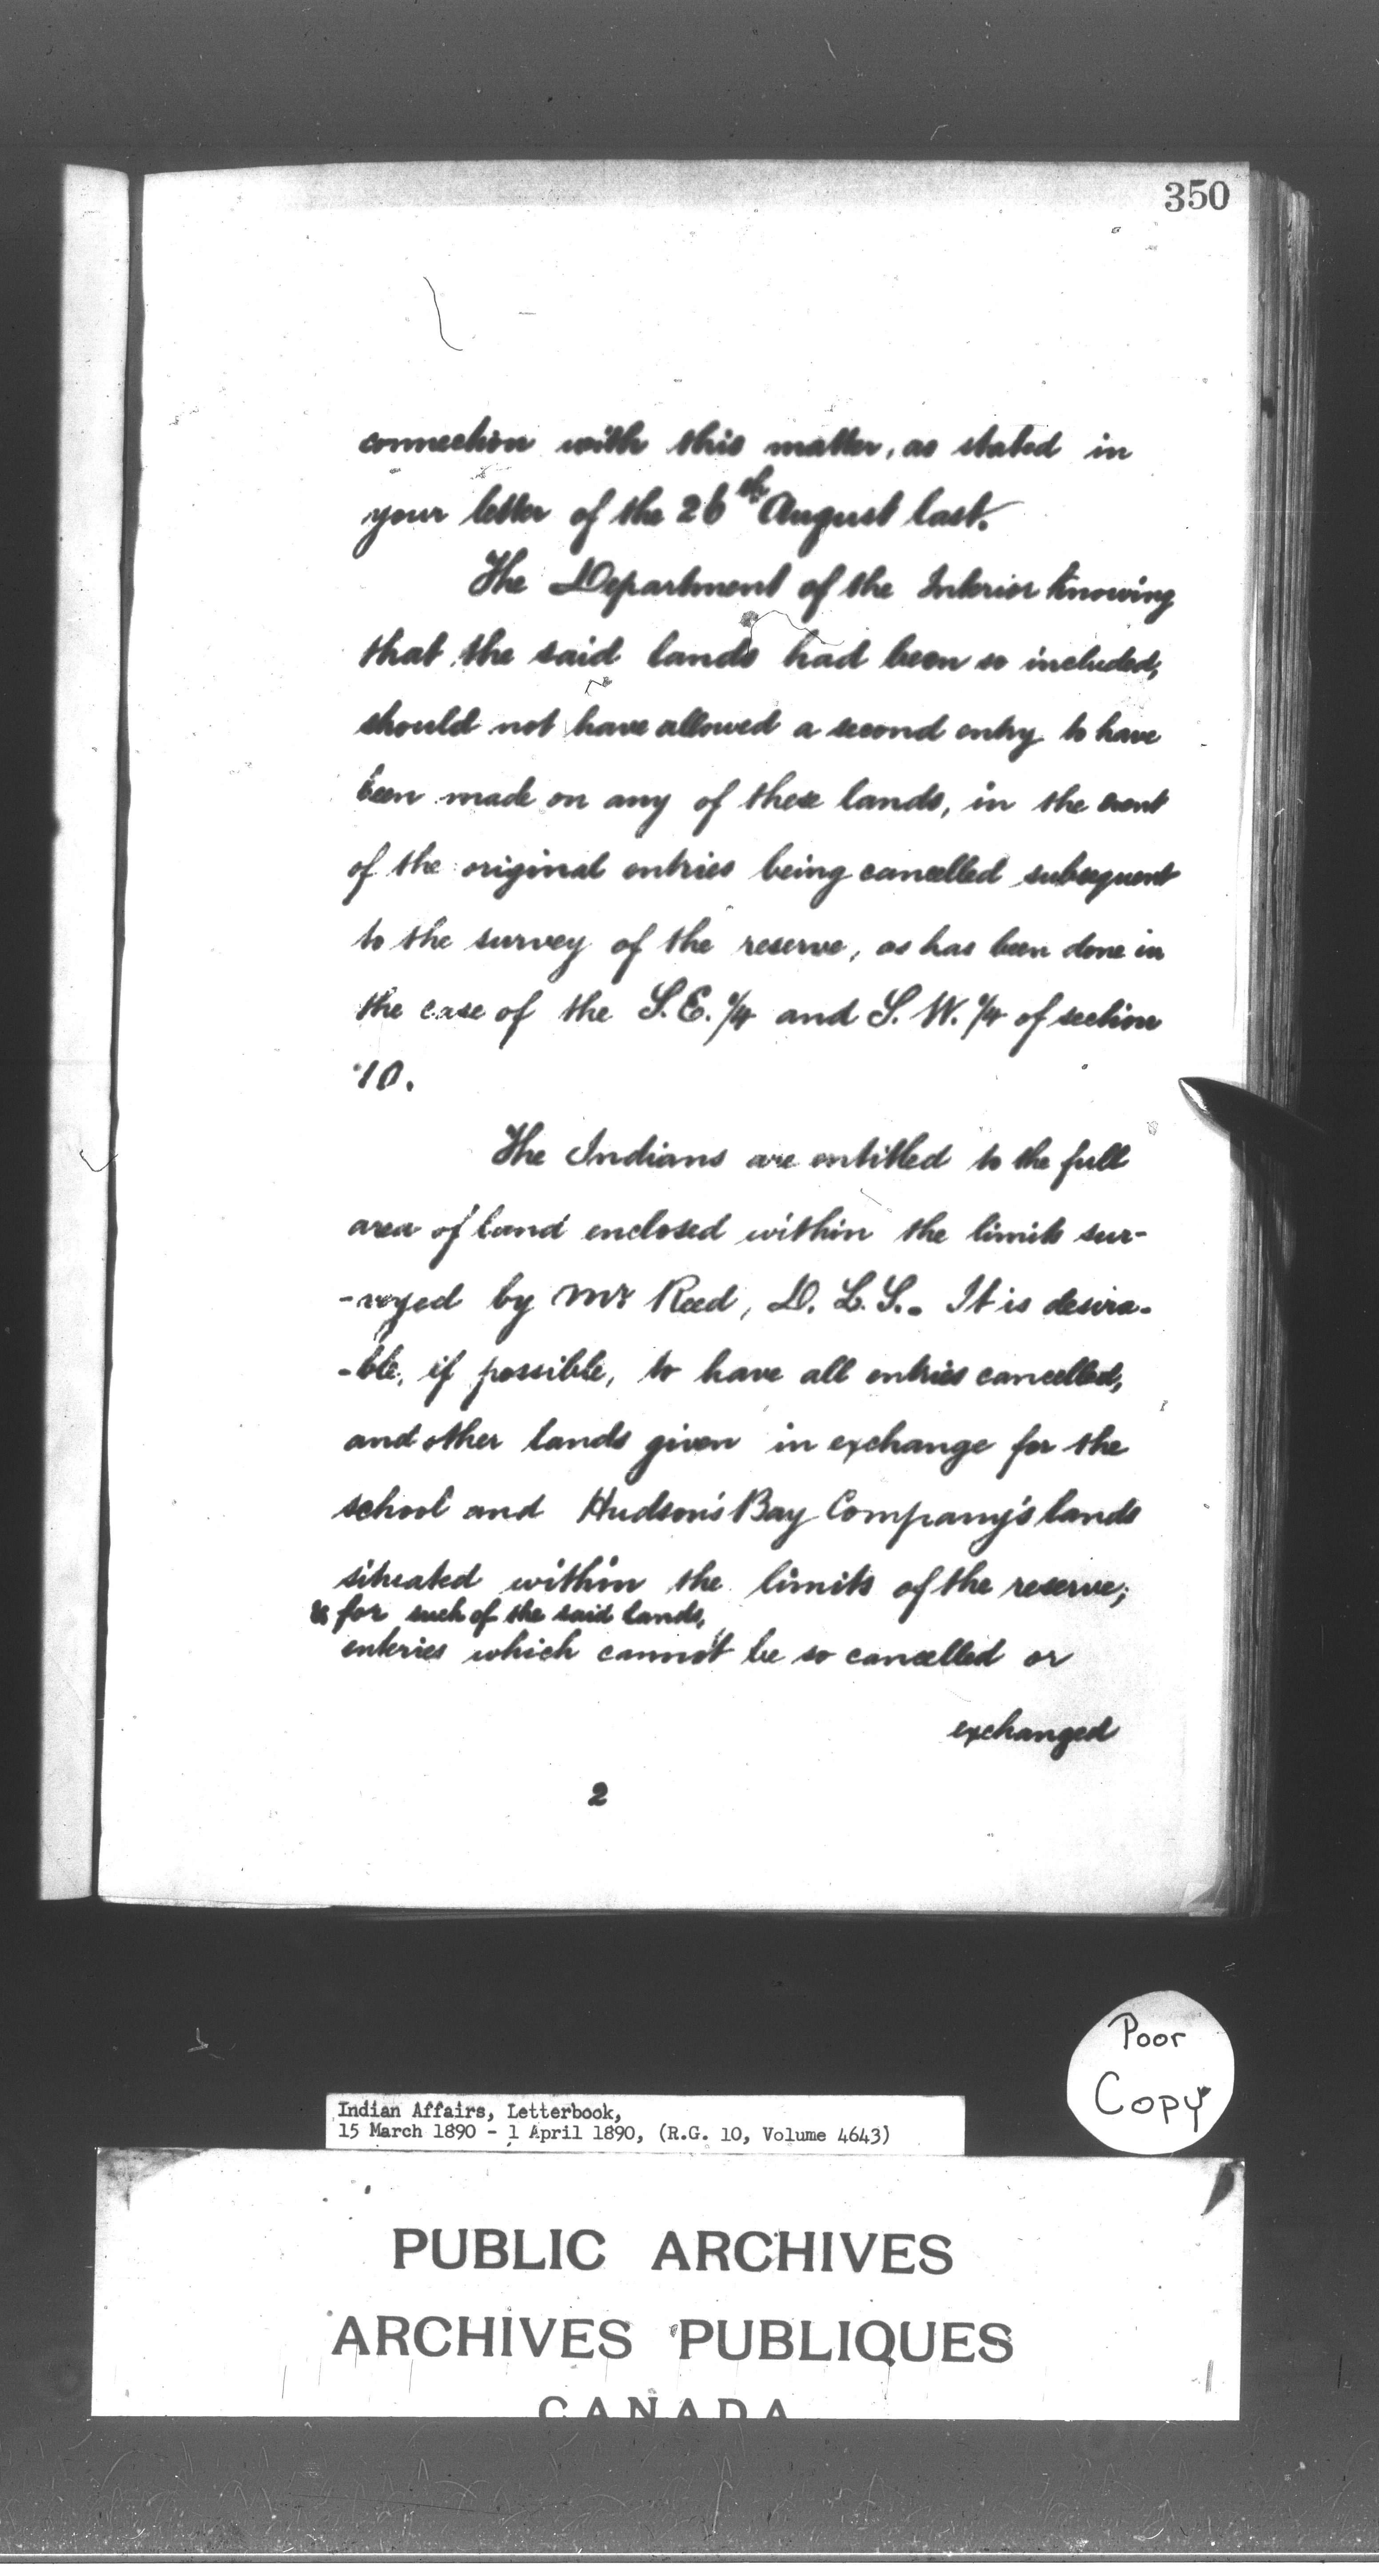 350
connection with this matter, as stated in
your letter of the 26th August last.
The Department of the Interior knowing
that the said lands had been so included,
should not have allowed a second entry to have
been made on any of these lands, in the event
of the original entries being cancelled subsequent
to the survey of the reserve, as has been done in
the case of the S.E. 1/4 and S.W. 1/4 of section
10.
The Indians are entitled to the full
area of land enclosed within the limits sur-
-veyed by Mr Reed, D.L.S. It is desira-
-ble, if possible, to have all entries cancelled,
and other lands given in exchange for the
school and Hudson's Bay Company's lands
situated within the limits of the reserve;
& for such of the said lands,
enteries which cannot be so cancelled or
exchanged
2
Poor
Copy
Indian Affairs, Letterbook,
15 March 1890 - 1 April 1890, (R.G. 10, Volume 4643)
PUBLIC ARCHIVES
ARCHIVES PUBLIQUES
CANADA